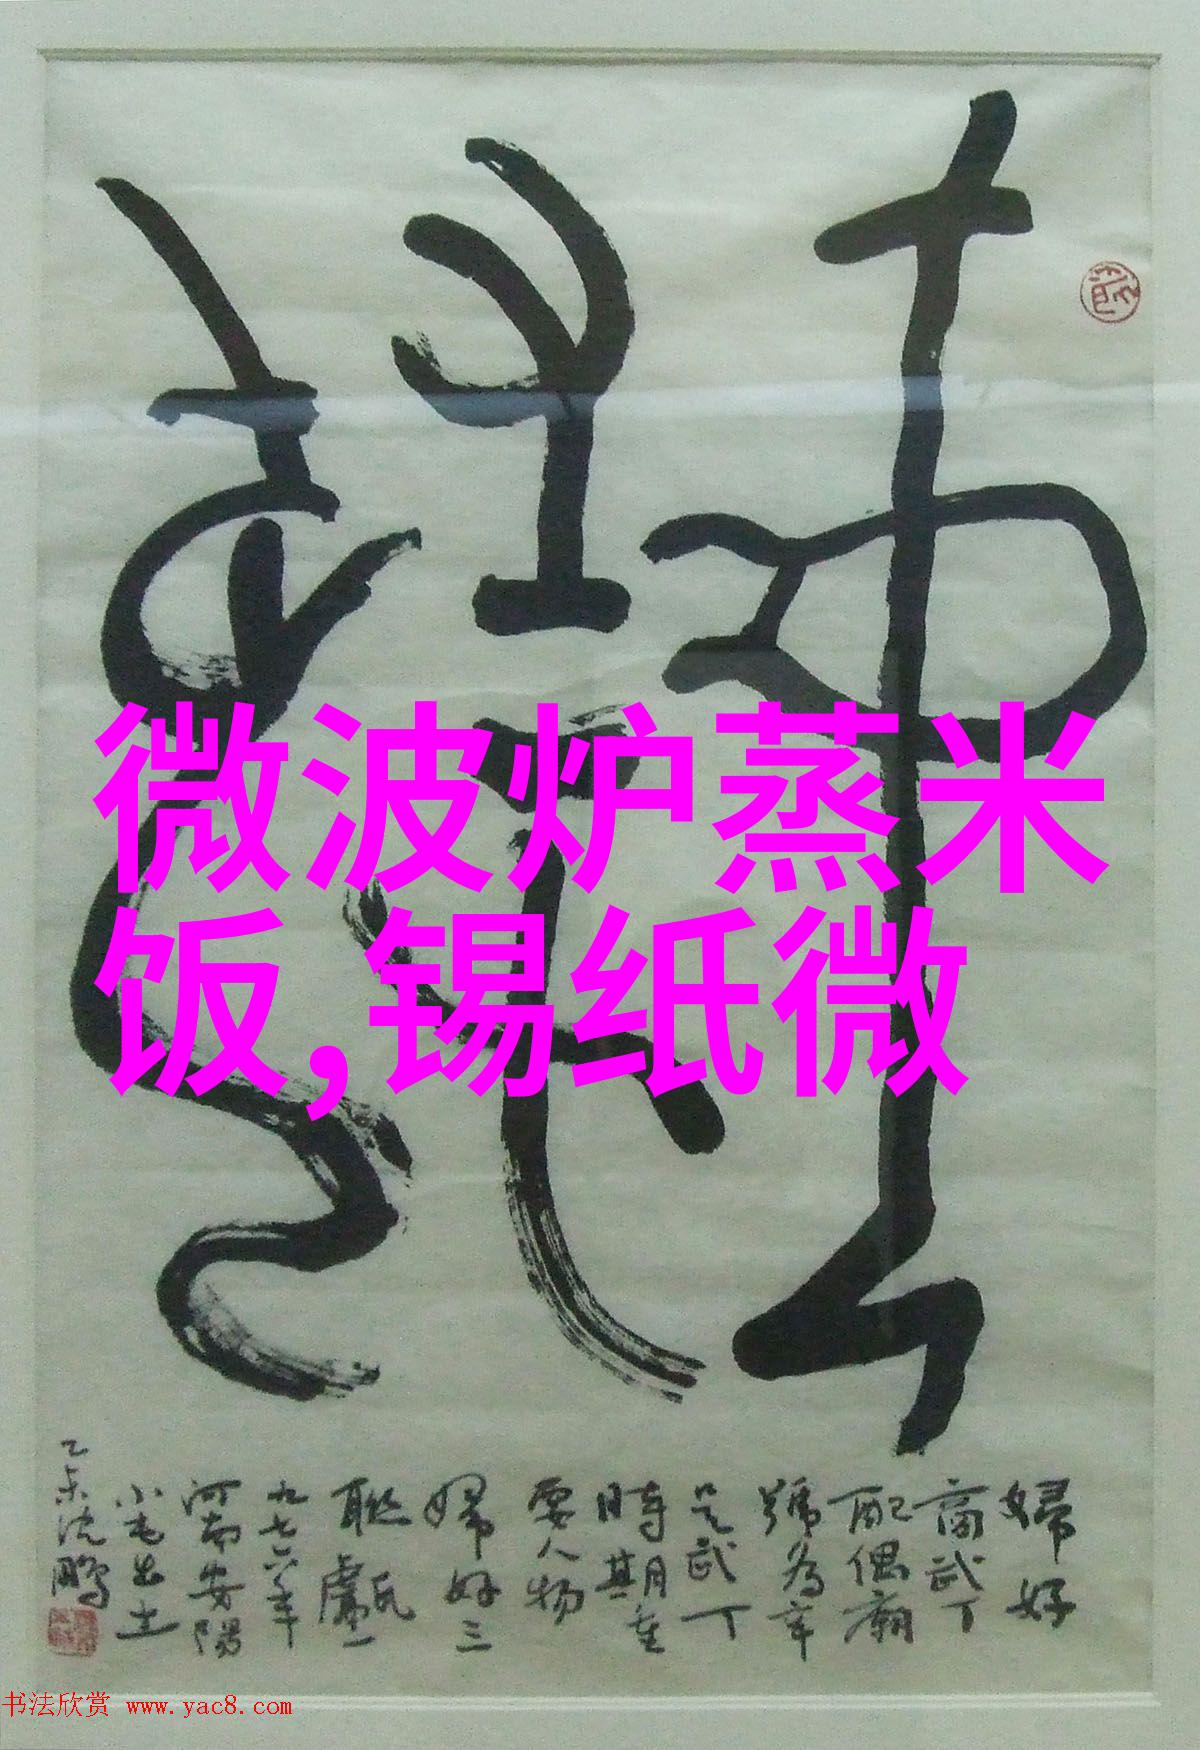 微波炉蒸米
饭,锡纸微
婦好
商武丁
配偶廟
號为辛
是武丁
時期重
要人物
婦好三
聯甗
九七六年
河南安陽
小屯出土
乙未沈鹏
书法欣赏 www.yac8.com